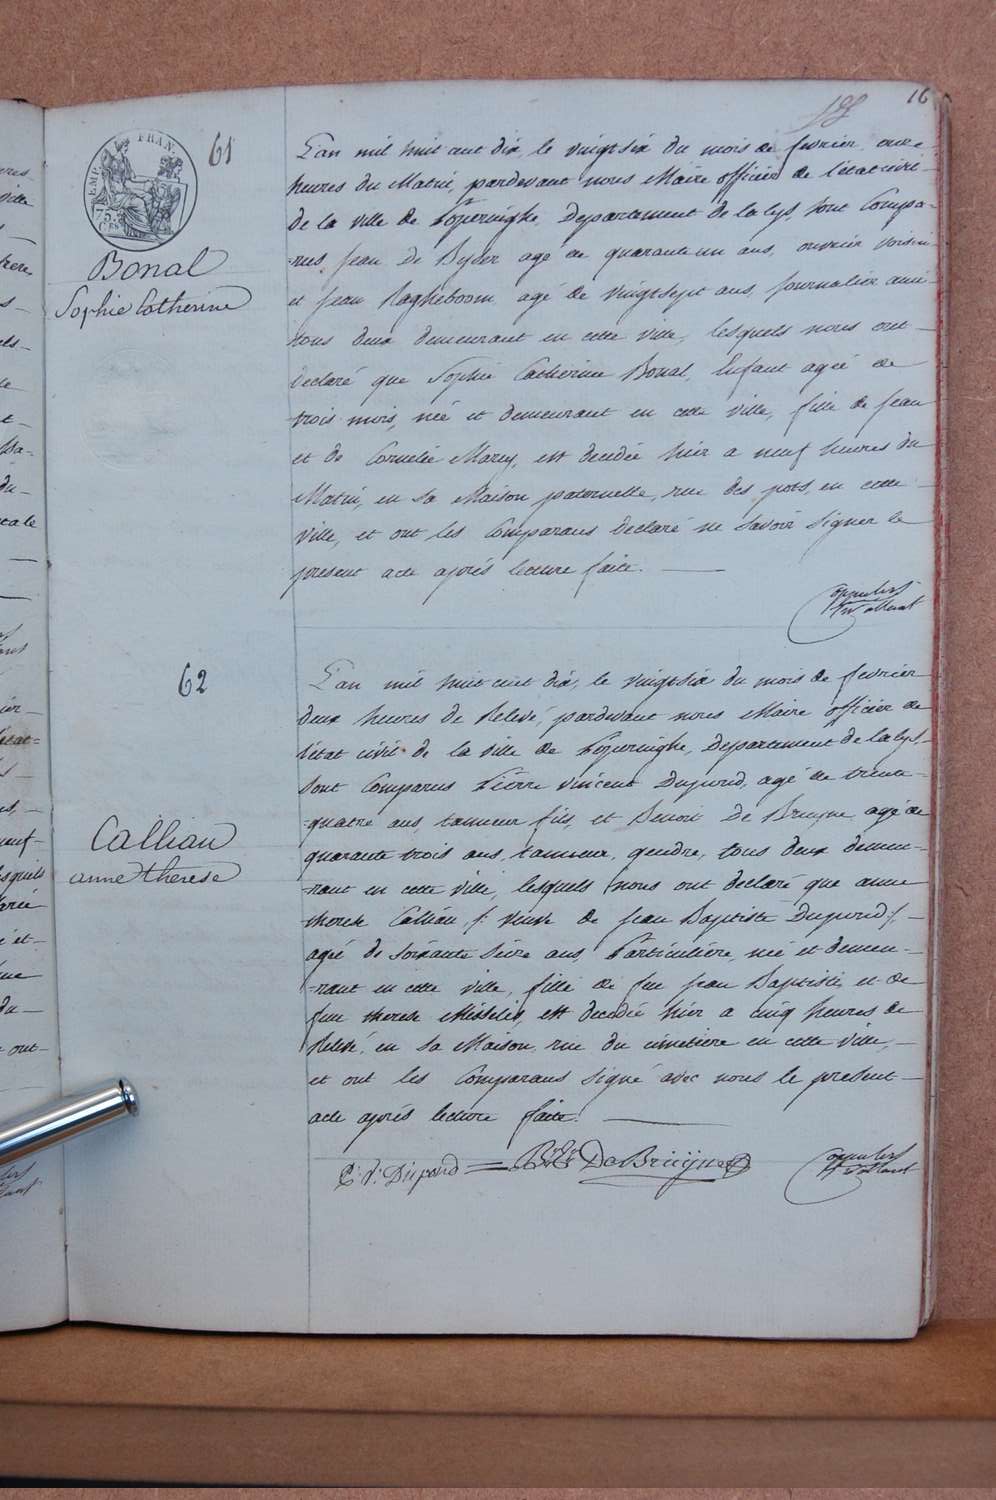 16
EMP. FRAN.
75
CES
61
Bonal
Sophie Catherine
L'an mil huit cent dix, le vingtsix du mois de fevrier onze
heures du Matin, pardevant nous Maire officier de l'etat civil
de la ville de Poperinghe, Departement de la lys, sont Compa-
rus, Jean De Byser agé de quarante un ans, ouvrier voisin
et Jean Ragheboom, agé de vingtsept ans, journalier ami
tous deux demeurant en cette ville, lesquels nous ont
declaré que Sophie Catherine Bonal, Enfant agée de
trois mois, née et demeurant en cette ville, fille de Jean
et de Cornelie Marey, est decedée hier a neuf heures du
Matin, en sa Maison paternelle, rue des pots, en cette
ville, et ont les Comparans declaré ne savoir signer le
present acte aprés lecture faite.
62
Callian
anne therese
L'an mil huit cent dix, le vingtsix du mois de fevrier
deux heures de Relevé, pardevant nous Maire officier de
l'etat civil de la ville de Poperinghe, Departement de la lys,
sont Comparus Pierre Vincent Dupond, agé de trente-
quatre ans, tanneur fils, et Benoit De Bruyne, agé de
quarante trois ans, tanneur, gendre, tous deux demeu-
rant en cette ville, lesquels nous ont declaré que anne
therese Callian /: veuve de Jean Baptiste Dupond :/
agée de soixante seize ans, Particuliere, née et demeu-
rant en cette ville, fille de feu Jean Baptiste et de
feue therese Misselis, est decedée hier a cinq heures de
Relevé, en sa Maison, rue du cimetière en cette ville,
et ont les Comparans signé avec nous le present
acte aprés lecture faite.
P. V. Dupond
De Bruyne